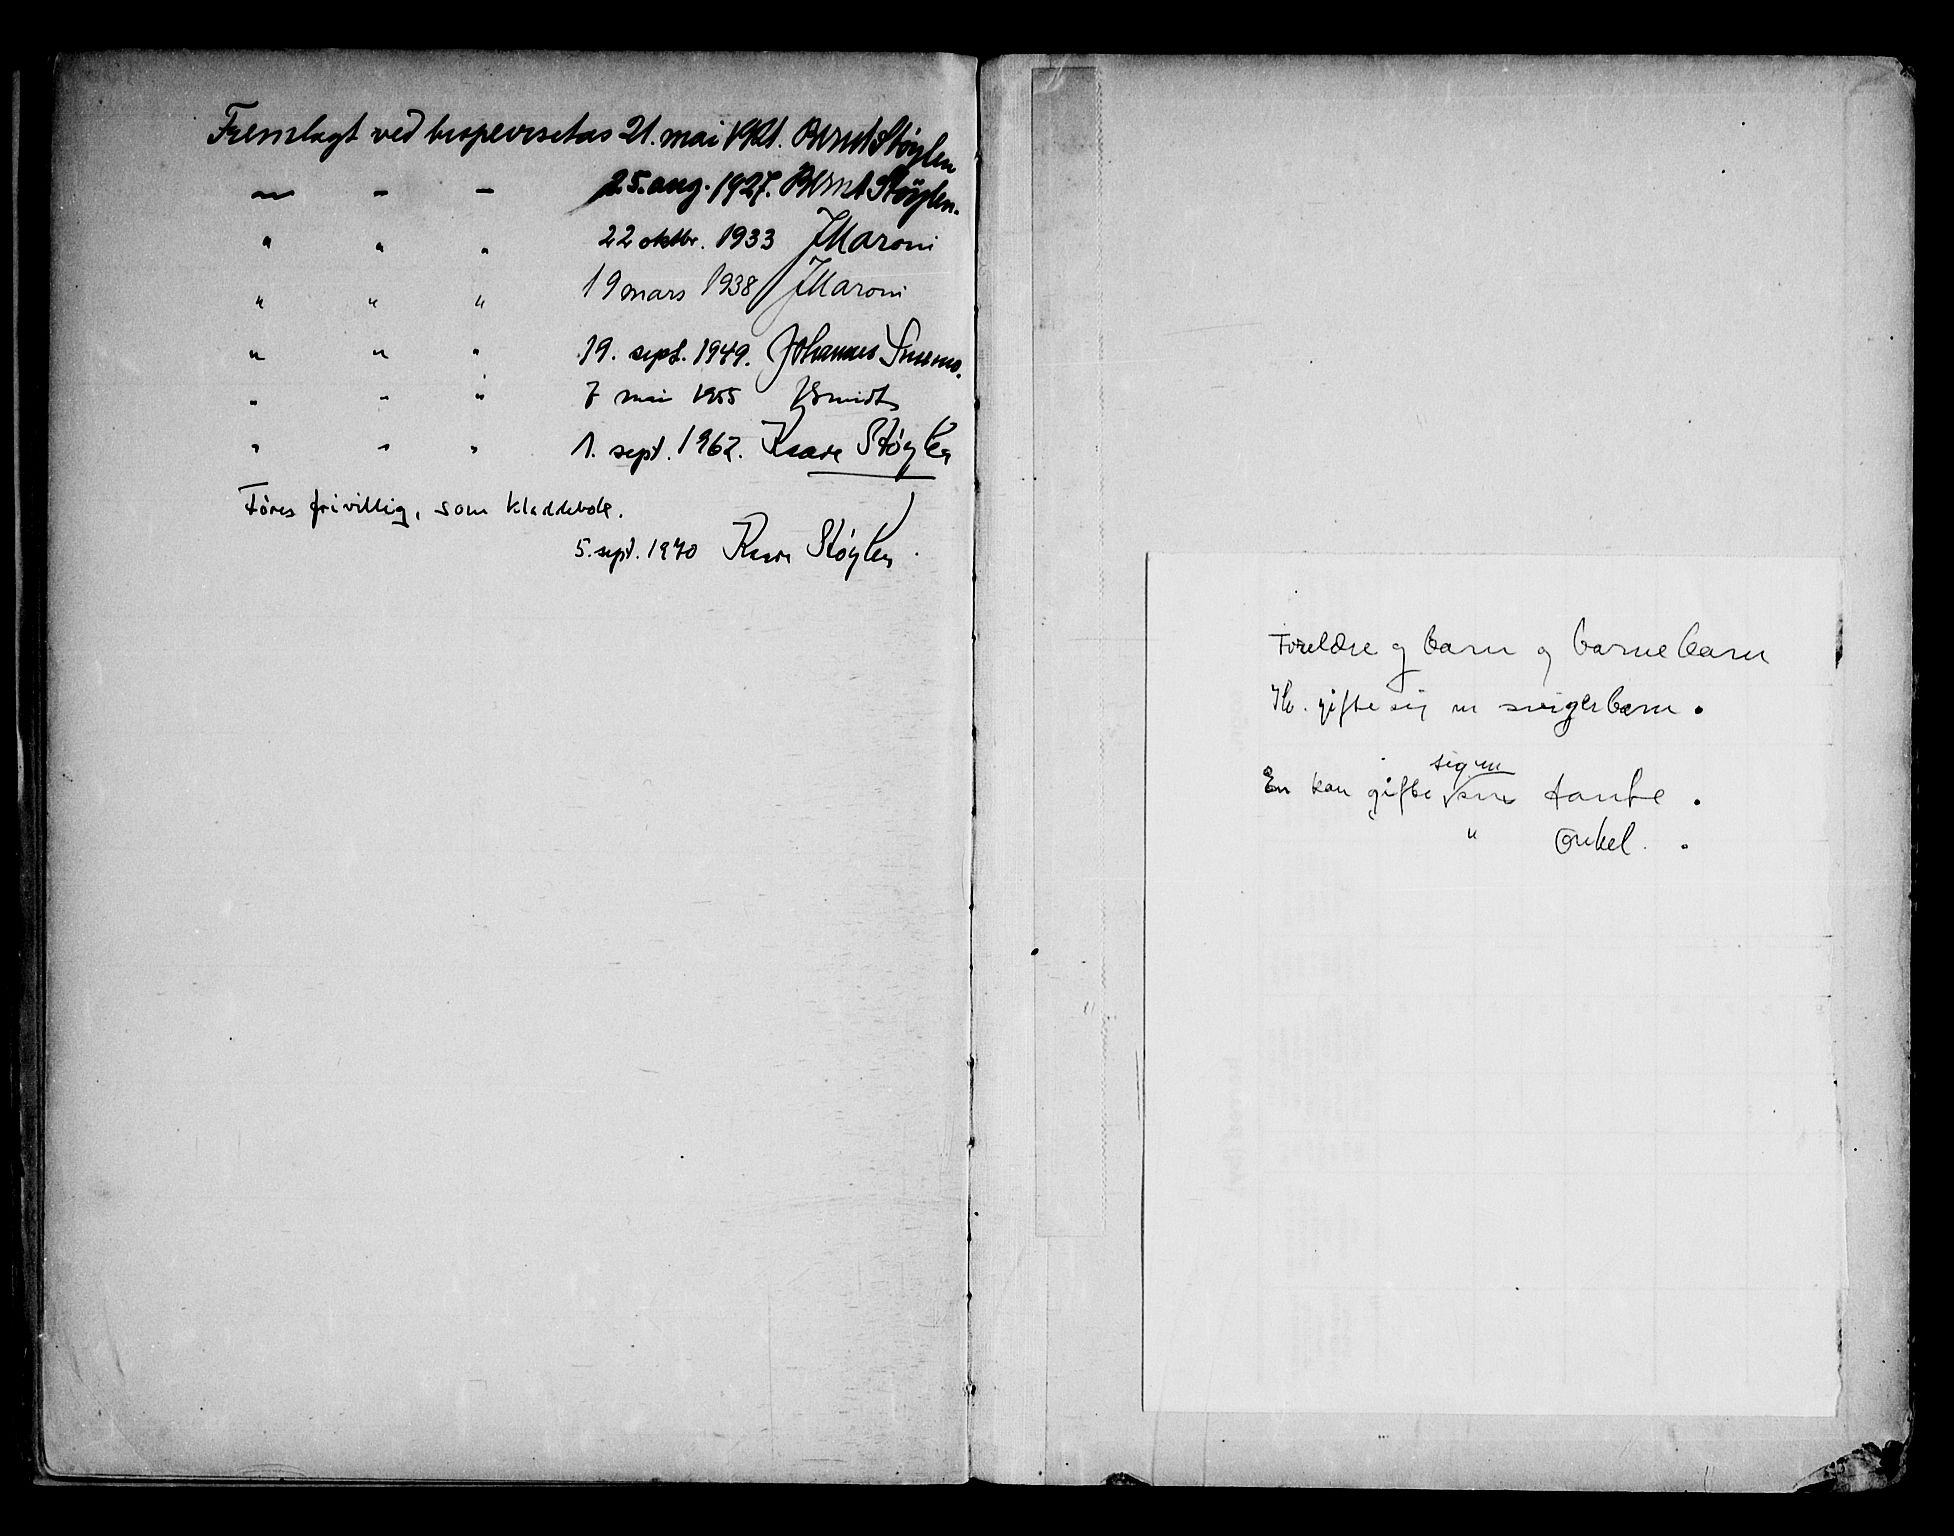 Fremlagt ved bispevisitas 21. mai 1921. Bernt Støylen
— - - 25. aug. 1927. Bernt Støylen.
" " " 22 oktbr. 1933 J Maroni
" " " 19 mars 1938 J Maroni
" " " 19. sept. 1949. Johannes Smemo.
" " " 7 mai 1955 J Smidt
" " " 1. sept. 1962. Kaare Støylen
Føres frivillig, som kladdebok.
5. sept. 1970 Kaare Støylen
Foreldre og barn og barnebarn
gifte sig m svigerbarn.
En kan gifte sig m sin tante.
" onkel.